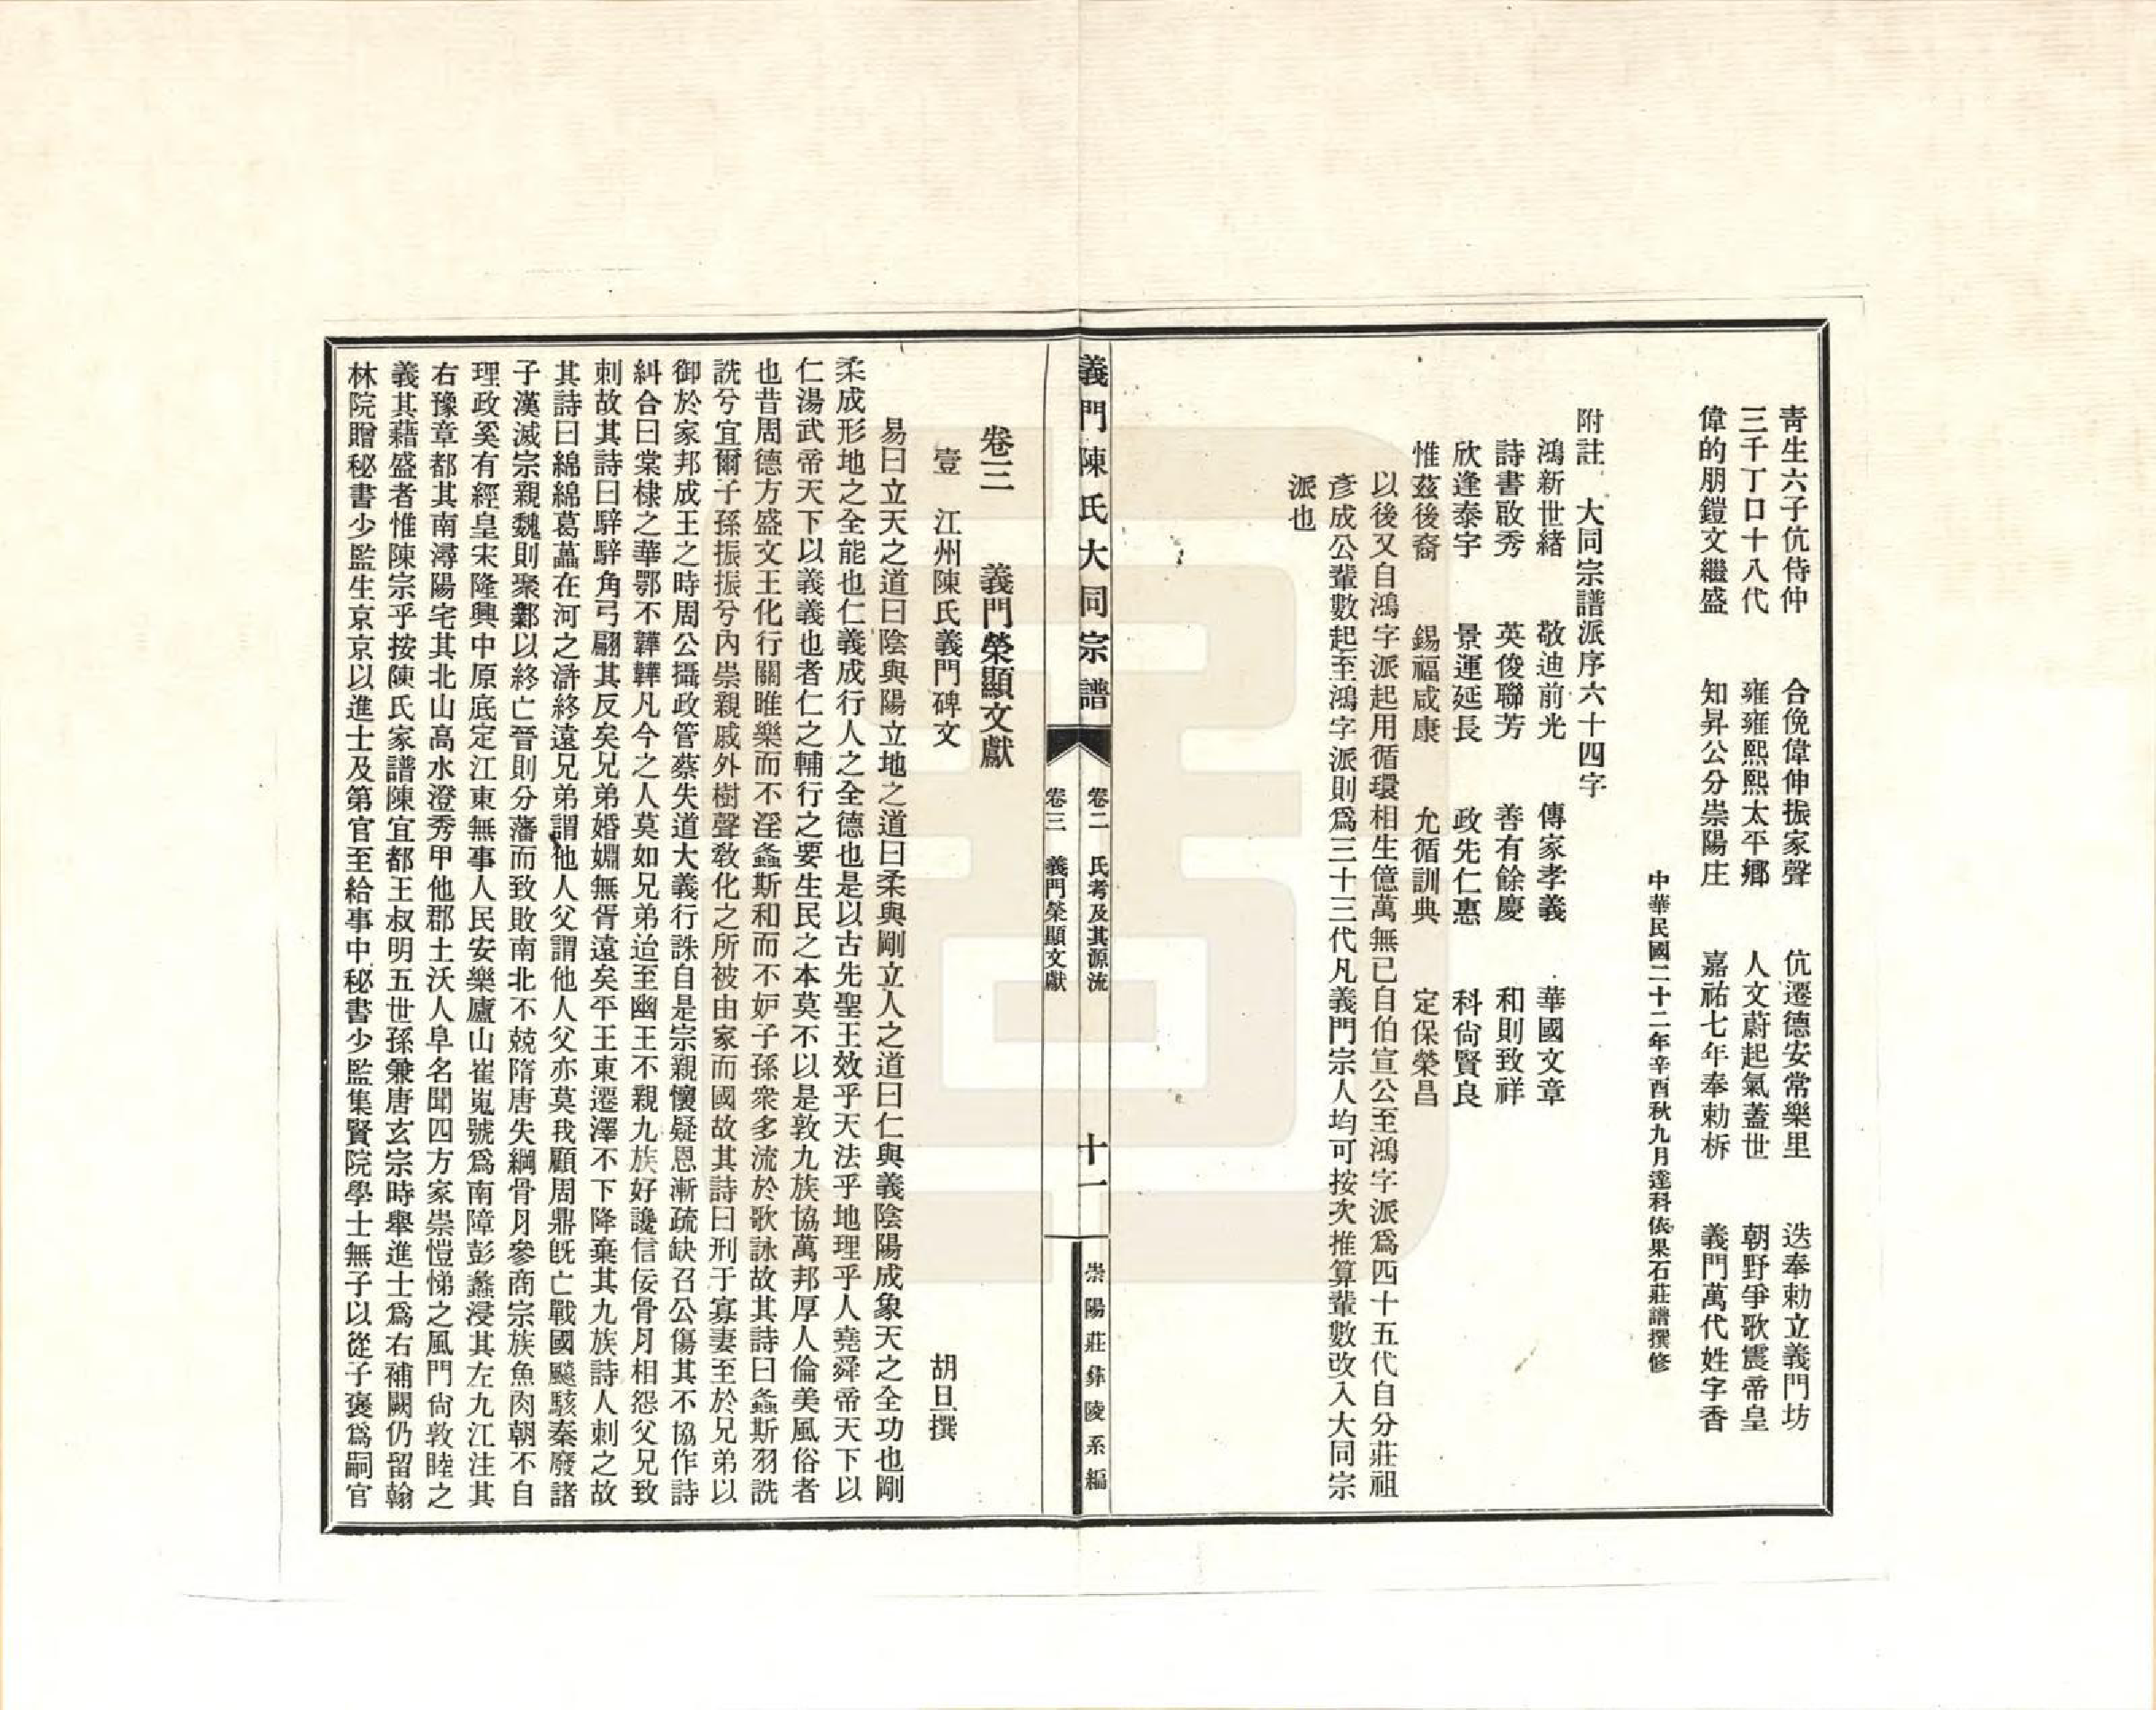 青生六子伉侍仲　合俛偉伸振家聲　伉遷德安常樂里　迭奉勅立義門坊
三千丁口十八代　雍雍熙熙太平鄉　人文蔚起氣蓋世　朝野爭歌震帝皇
偉的朋鎧文繼盛　知昇公分崇陽庄　嘉祐七年奉勅柝　義門萬代姓字香
中華民國二十二年辛酉秋九月逹科依果石莊譜撰修
附註　大同宗譜派序六十四字
鴻新世緒　敬迪前光　傳家孝義　華國文章
詩書啟秀　英俊聯芳　善有餘慶　和則致祥
欣逢泰宇　景運延長　政先仁惠　科尙賢良
惟茲後裔　錫福咸康　允循訓典　定保榮昌
以後又自鴻字派起用循環相生億萬無已自伯宣公至鴻字派爲四十五代自分莊祖
彥成公輩數起至鴻字派則爲三十三代凡義門宗人均可按次推算輩數改入大同宗
派也
義門陳氏大同宗譜
卷二　氏考及其源流
卷三　義門榮顯文獻
十一
崇陽莊彝陵系編
卷三　義門榮顯文獻
壹　江州陳氏義門碑文　胡旦撰
易曰立天之道曰陰與陽立地之道曰柔與剛立人之道曰仁與義陰陽成象天之全功也剛
柔成形地之全能也仁義成行人之全德也是以古先聖王效乎天法乎地理乎人堯舜帝天下以
仁湯武帝天下以義義也者仁之輔行之要生民之本莫不以是敦九族協萬邦厚人倫美風俗者
也昔周德方盛文王化行關睢樂而不淫螽斯和而不妒子孫衆多流於歌詠故其詩曰螽斯羽詵
詵兮宜爾子孫振振兮內崇親戚外樹聲敎化之所被由家而國故其詩曰刑于寡妻至於兄弟以
御於家邦成王之時周公攝政管蔡失道大義行誅自是宗親懷疑恩漸疏缺召公傷其不協作詩
糾合曰棠棣之華鄂不韡韡凡今之人莫如兄弟迨至幽王不親九族好讒信佞骨肉相怨父兄致
刺故其詩曰騂騂角弓翩其反矣兄弟婚婣無胥遠矣平王東遷澤不下降棄其九族詩人刺之故
其詩曰綿綿葛藟在河之滸終遠兄弟謂他人父謂他人父亦莫我顧周鼎旣亡戰國飈駭秦廢諸
子漢滅宗親魏則聚鄴以終亡晉則分藩而致敗南北不兢隋唐失綱骨月參商宗族魚肉朝不自
理政奚有經皇宋隆興中原底定江東無事人民安樂廬山崔嵬號爲南障彭蠡浸其左九江注其
右豫章都其南潯陽宅其北山高水澄秀甲他郡土沃人阜名聞四方家崇愷悌之風門尙敦睦之
義其藉盛者惟陳宗乎按陳氏家譜陳宜都王叔明五世孫兼唐玄宗時舉進士爲右補闕仍留翰
林院贈秘書少監生京京以進士及第官至給事中秘書少監集賢院學士無子以從子褒爲嗣官